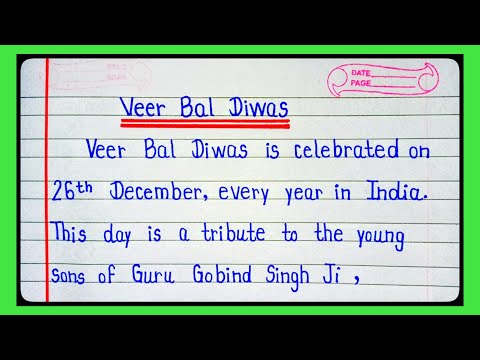 DATE
PAGE
Veer Bal Diwas
Veer Bal Diwas is celebrated on
26th December, every year in India.
This day is a tribute to the young
sons of Guru Gobind Singh Ji ,